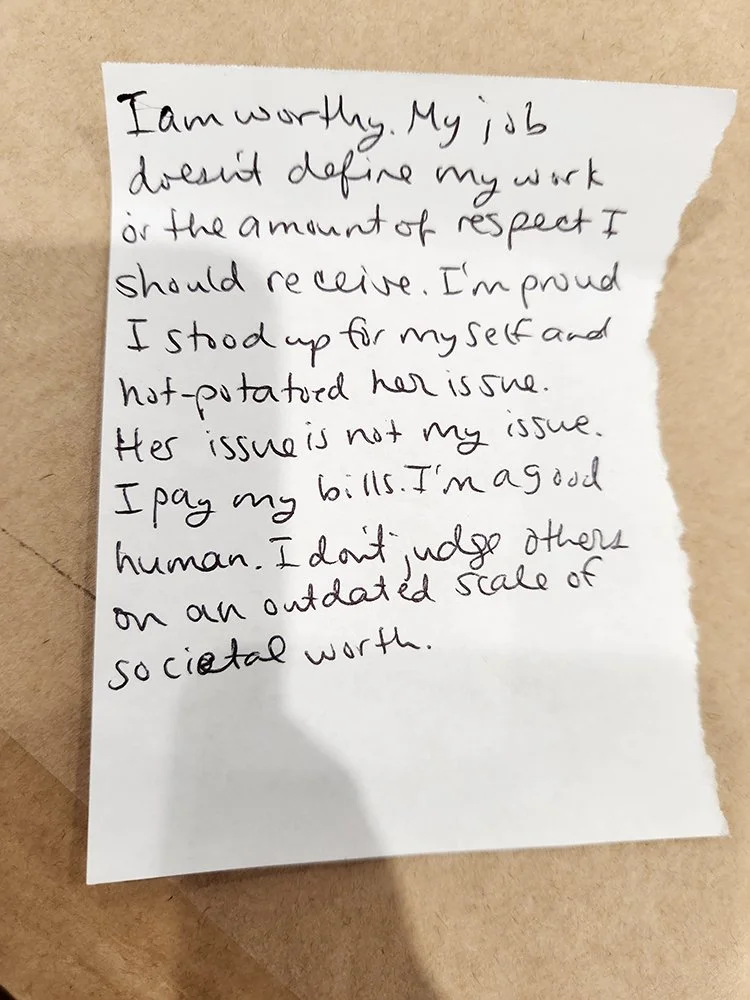 I am worthy. My job
doesn't define my work
or the amount of respect I
should receive. I'm proud
I stood up for myself and
hot-potatoed her issue.
Her issue is not my issue.
I pay my bills. I'm a good
human. I don't judge others
on an outdated scale of
societal worth.